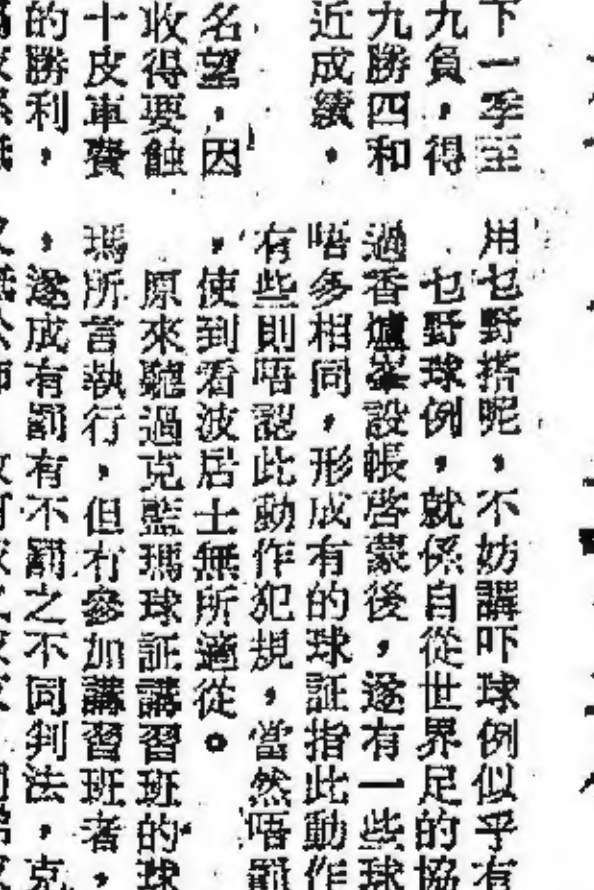 下一季至
九負，得
九勝四和
近成績。
名望，因
收得要蝕
十皮車費
的勝利，
用乜野搭呢，不妨講吓球例似乎有
乜野球例，就係自從世界足的協
過香爐峯設帳啓蒙後，遂有一些球
唔多相同，形成有的球証指此動作
有些則唔認此動作犯規，當然唔罰
，使到看波居士無所適從。
原來聽過克藍瑪球証講習班的球
瑪所言執行，但冇參加講習班者，
，遂成有罰有不罰之不同判法，克